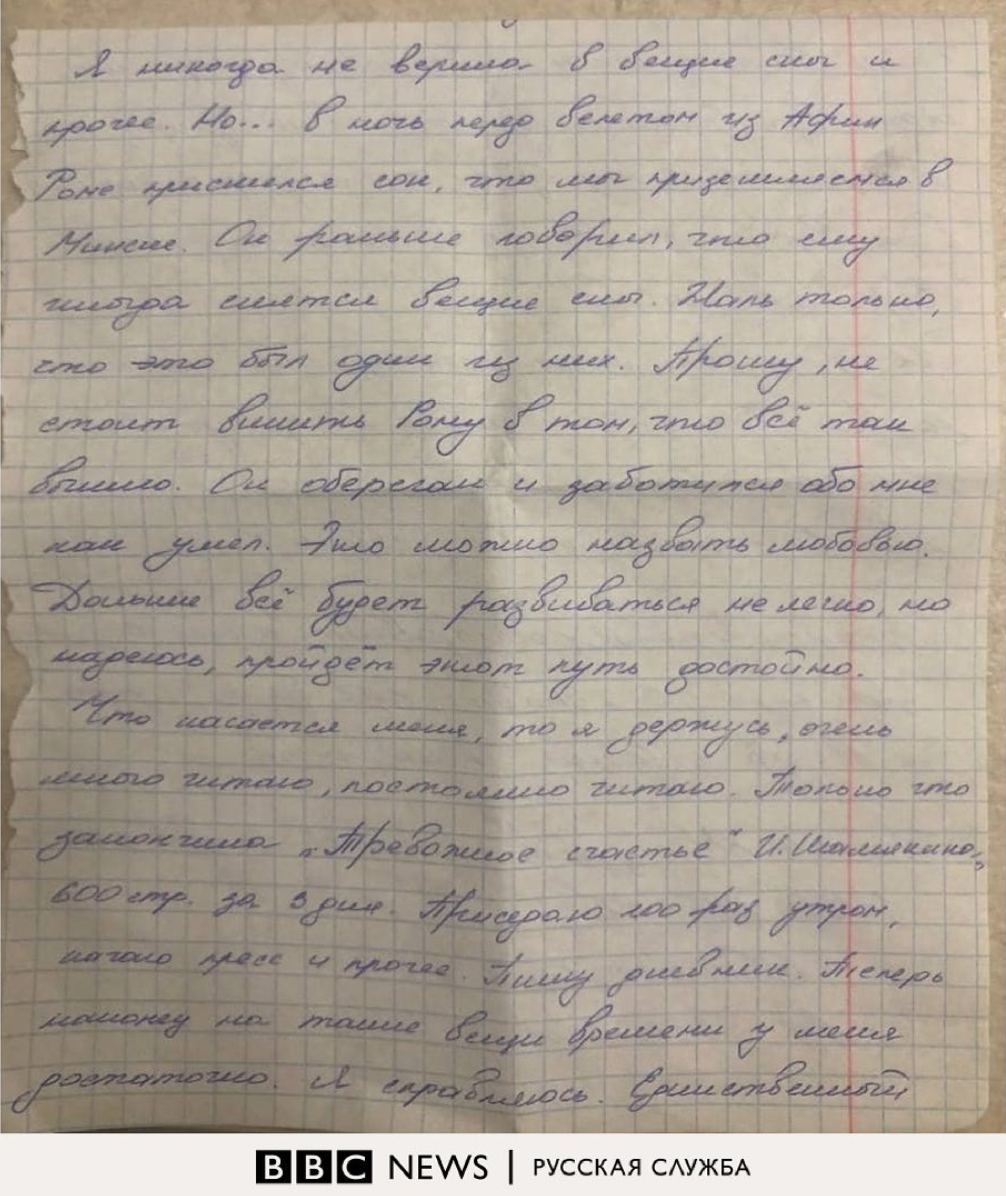 Я никогда не верила в вещие сны и
прочее. Но... в ночь перед вылетом из Афин
Роме приснился сон, что мы приземляемся в
Минске. Он раньше говорил, что ему
иногда снятся вещие сны. Жаль только,
что это был один из них. Прошу, не
стоит винить Рому в том, что всё так
вышло. Он оберегал и заботился обо мне
как умел. Это можно назвать любовью.
Дальше всё будет развиваться нелегко, но
надеюсь, пройдёт этот путь достойно.
Что касается меня, то я держусь, очень
много читаю, постоянно читаю. Только что
закончила „Тревожное счастье" И. Шамякина,
600 стр. за 3 дня. Приседаю 100 раз утром,
качаю пресс и прочее. Пишу дневник. Теперь
наконец на такие вещи времени у меня
достаточно. Я справляюсь. Единственный
BBC NEWS | РУССКАЯ СЛУЖБА